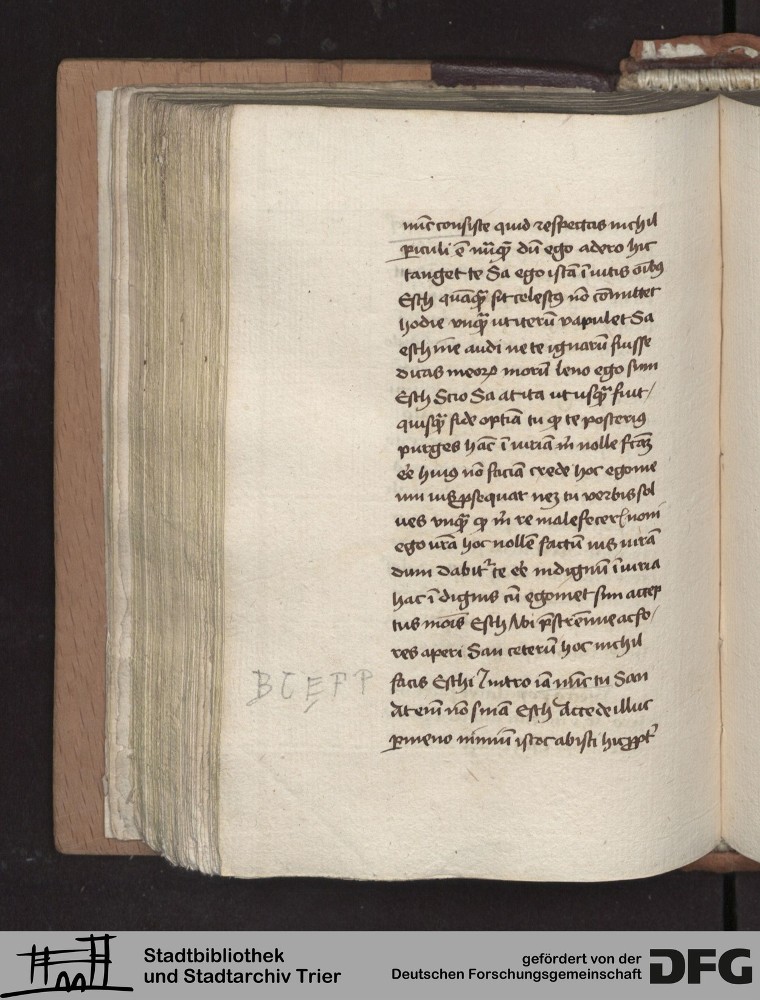 nūc consiste quid respectas nichil
ꝑiculi ē nūqꝫ dū ego adero hic
tanget te Sa ego istā ī uitis oībꝰ
Esch quāqꝫ sit celestꝰ nō cōmittet
hodie vnqꝫ ut iterū vapulet Sa
eschine audi ne te ignarū fuisse
dicas meoꝝ morū leno ego sum
Esch Scio Sa at ita ut usqꝫ fuit/
quisqꝫ fide optīa tu ꝙ te posteriꝰ
purges hāc ī iuriā m̄ nolle fcāꝫ
eē huiꝰ nō faciā crede hoc ego me
um ius ꝑsequar neqꝫ tu verbis sol
ues vnqꝫ ꝙ m̄ re malefecer noui
ego vrā hoc nollē factū ius iurā
dum dabit̉ te eē indignū īiuria
hac īdignis cū egomet sim accep
tus mōis Esch Abi p̄strēnue ac fo/
res aperi San ceterū hoc nichil
facis Eschi Intro iā nūc tu San
At enī nō sinā Esch Accede illuc
ꝑmeno nimiū istoc abisti hic ꝓpt̉
B C E F P
Stadtbibliothek
und Stadtarchiv Trier
gefördert von der
Deutschen Forschungsgemeinschaft
DFG